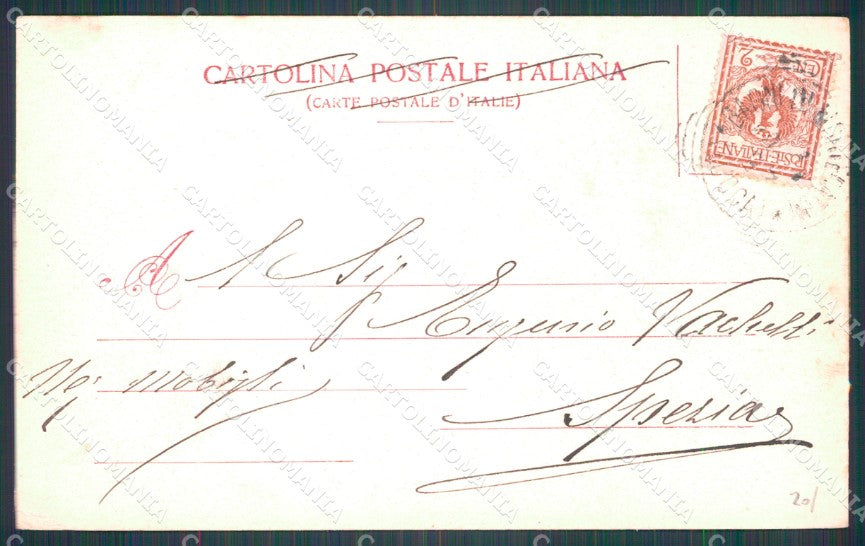 CARTOLINA POSTALE ITALIANA
(CARTE POSTALE D'ITALIE)
CENT. 2
POSTE·ITALIANE
A
Al Sig
Eugenio Vachelli
Spezia
20/
CARTOLINOMANIA